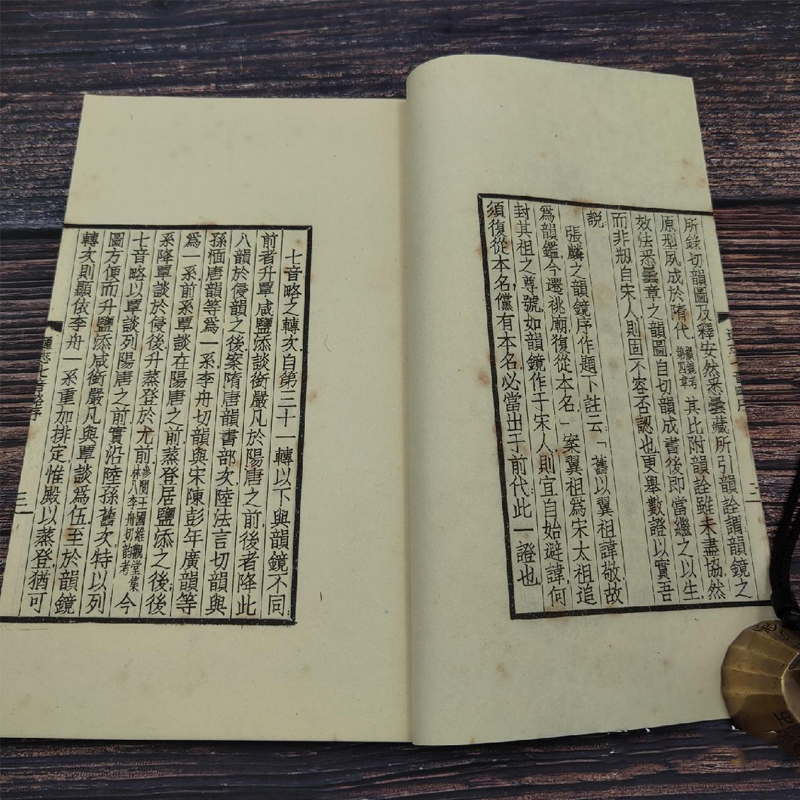 所錄切韻圖及釋安然悉曇藏所引韻詮謂韻鏡之
原型夙成於隋代其比附韻詮雖未盡協然
效法悉曇章之韻圖自切韻成書後即當繼之以生
而非刱自宋人則固不容否認也更舉數證以實吾
說
張麟之韻鏡序作題下註云「舊以翼祖諱敬故
爲韻鑑今遷祧廟復從本名」案翼祖爲宋太祖追
封其祖之尊號如韻鏡作于宋人則宜自始避諱何
須復從本名儻有本名必當出于前代此一證也
七音略之轉次自第三十一轉以下與韻鏡不同
前者升覃咸鹽添談銜嚴凡於陽唐之前後者降此
八韻於侵韻之後案隋唐韻書部次陸法言切韻與
孫愐唐韻等爲一系李舟切韻與宋陳彭年廣韻等
爲一系前系覃談在陽唐之前蒸登居鹽添之後後
系降覃談於侵後升蒸登於尤前參閱王國維觀堂集林八李舟切韻考今
七音略以覃談列陽唐之前實沿陸孫舊次特以列
圖方便而升鹽添咸銜嚴凡與覃談爲伍至於韻鏡
轉次則顯依李舟一系重加排定惟殿以蒸登猶可
通志七音略序
三